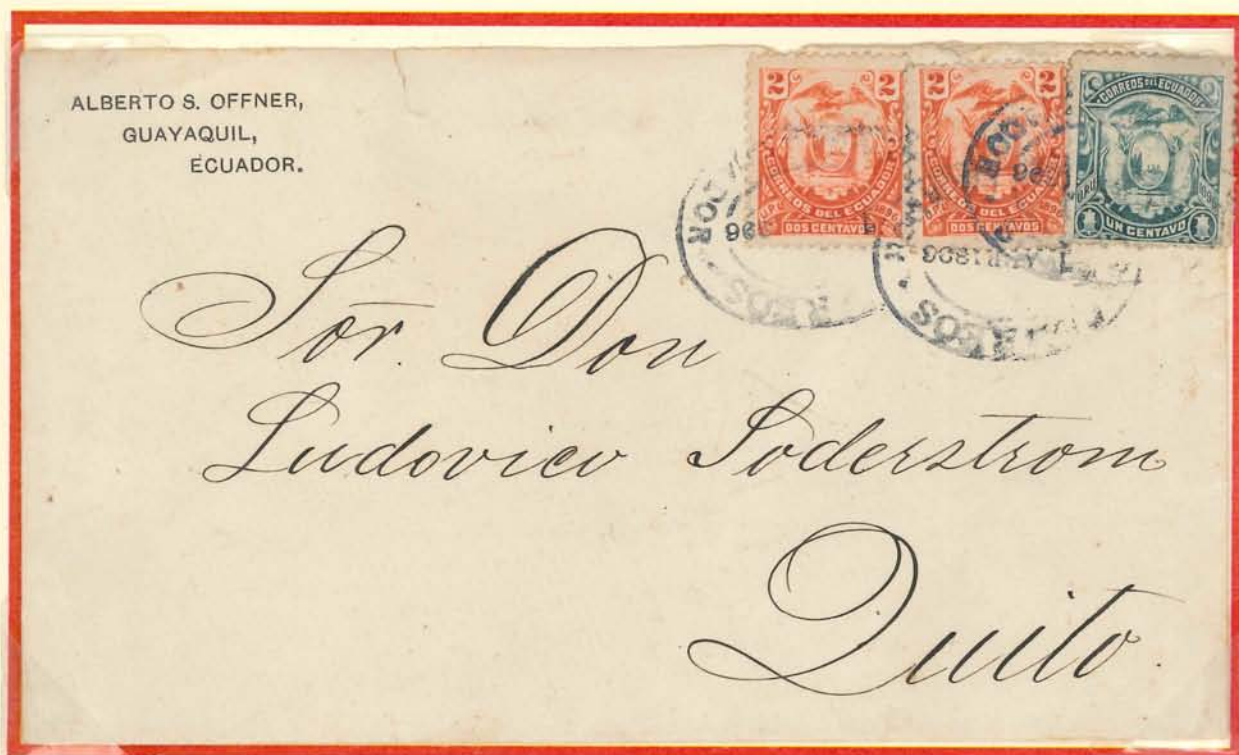 ALBERTO S. OFFNER,
GUAYAQUIL,
ECUADOR.
2 2
CORREOS DEL ECUADOR
DOS CENTAVOS
2 2
CORREOS DEL ECUADOR
DOS CENTAVOS
CORREOS DEL ECUADOR
1 1
UN CENTAVO
Sōr. Don
Ludovico Söderstrom
Quito.